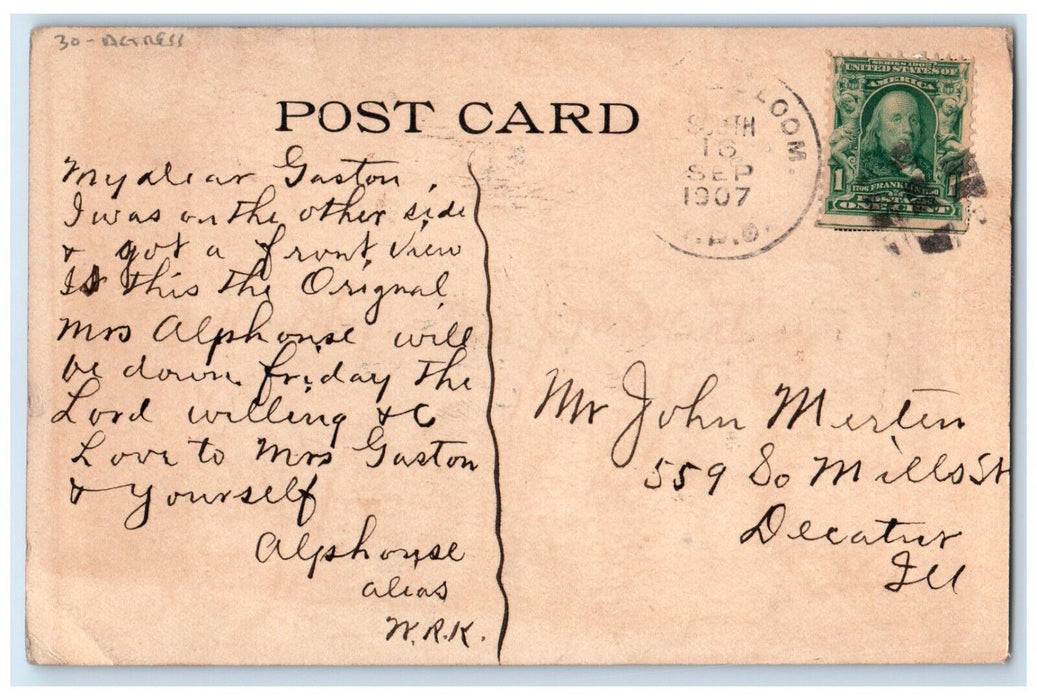 30-ACTRESS
POST CARD
My dear Gaston,
I was on the other side
& got a front view
Is this the Orignal
Mrs Alphonse will
be down friday the
Lord willing &C
Love to Mrs Gaston
& Yourself
Alphonse
alias
W.R.K.
LOOM.
SOUTH
16
SEP
1907
SERIES 1902
UNITED STATES OF
AMERICA
1 1
FRANKLIN
ONE CENT
Mr John Merten
559 So Mills St
Decatur
Ill